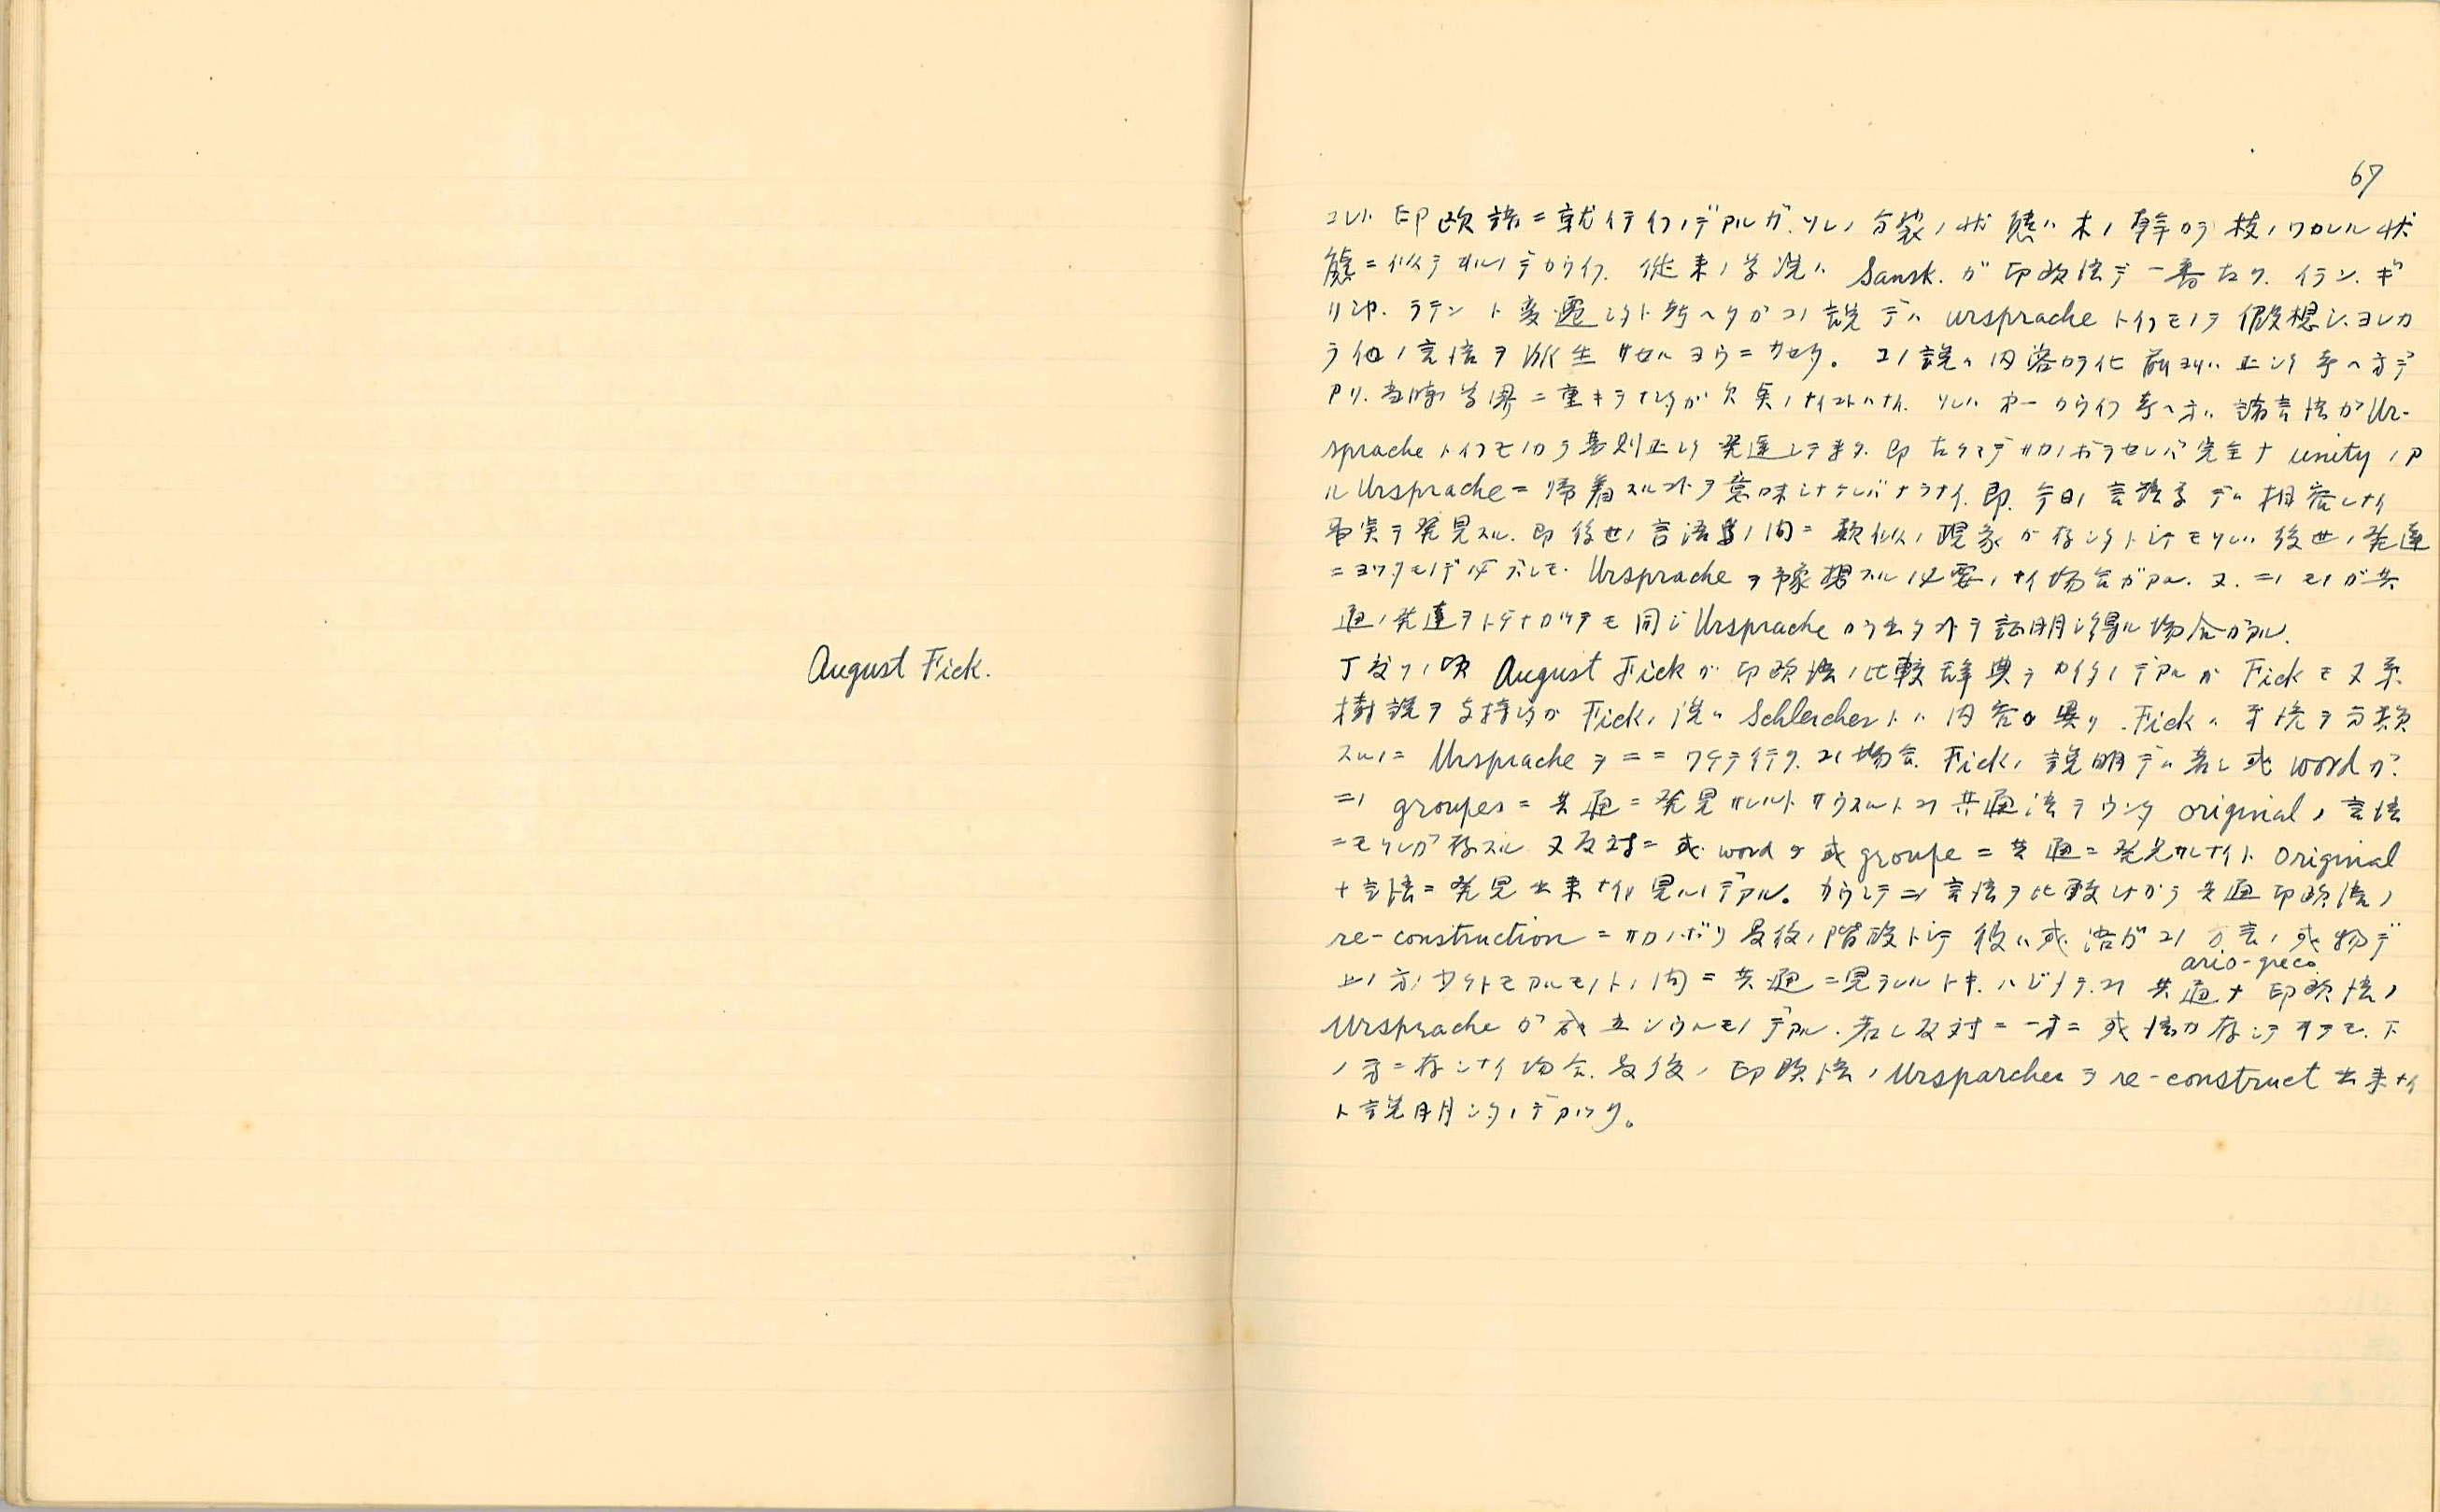 August Fick.
67
コレハ印欧語ニ就イテイフノデアルガ、ソレノ分裂ノ状態ハ木ノ幹カラ枝ノワカレル状
態ニ似テヰルノデカウイフ. 従来ノ学説ハ Sansk. ガ印欧語デ一番古ク. イラン. ギ
リシヤ. ラテント変遷シタト考ヘタガコノ説デハ ursprache トイフモノヲ仮想シ、ヨレカ
ラ他ノ言語ヲ派生サセルヨウニカセタ。コノ説ハ内容カラ化前ヨリハ正シイ考ヘ方デ
アリ. 当時ノ学界ニ重キヲナシタガ欠点ノナイコトハナイ. ソレハ オ一 カウイフ考ヘ方ハ諸言語ガ Ur-
sprache トイフモノカラ規則正シク発達シテ来タ. 即古クマデサカノボラセレバ完全ナ unity ノア
ル Ursprache ニ帰着スルコトヲ意味シナケレバナラナイ. 即. 今日ノ言語学デハ相容レナイ
事実ヲ発見スル. 即後世ノ言語ノ間ニ類似ノ現象ガ存シタトシテモソレハ後世ノ発達
ニヨツタモノデ必ズシモ. Ursprache ヲ予想スル必要ノナイ場合ガアル. 又. 二ノモノガ共
通ノ発達ヲトゲナガツテモ同ジ Ursprache カラ出タコトヲ証明シ得ル場合ガアル.
丁度ソノ頃 August Fick ガ印欧語ノ比較辞典ヲカイタノデアルガ Fick モ又系
樹説ヲ支持シタガ Fick ノ説ハ Schleicher トハ内容ガ異リ. Fick ハ系統ヲ分類
スルノニ Ursprache ヲ二二ワケテ行ク. コノ場合. Fick ノ説明デハ若シ或 word ガ
二ノ groupes ニ共通ニ発見サレルトサウスルトコノ共通語ヲウンダ original ノ言語
ニモソレガ存スル 又反対ニ或 word ガ或 groupe ニ共通ニ発見サレナイト original
ナ言語ニ発見出来ナイト見ルノデアル。カウシテ二ノ言語ヲ比較シナガラ共通印欧語ノ
re-construction ニサカノボリ最後ノ階段トシテ彼ハ或語ガコノ方言ノ或物デ
上ノ方ノ少クトモアルモノトノ間ニ共通ニ見ラレルトキ. ハジメテ. コノ共通ナ ario-greco 印欧語ノ
Ursprache ガ成立シウルモノデアル. 若シ反対ニ一方ニ或語ガ存シテヰテモ. 下
ノ方ニ存シナイ場合. 最後ノ印欧語ノ Ursparches ヲ re-construct 出来ナイ
ト説明シタノデアツタ。